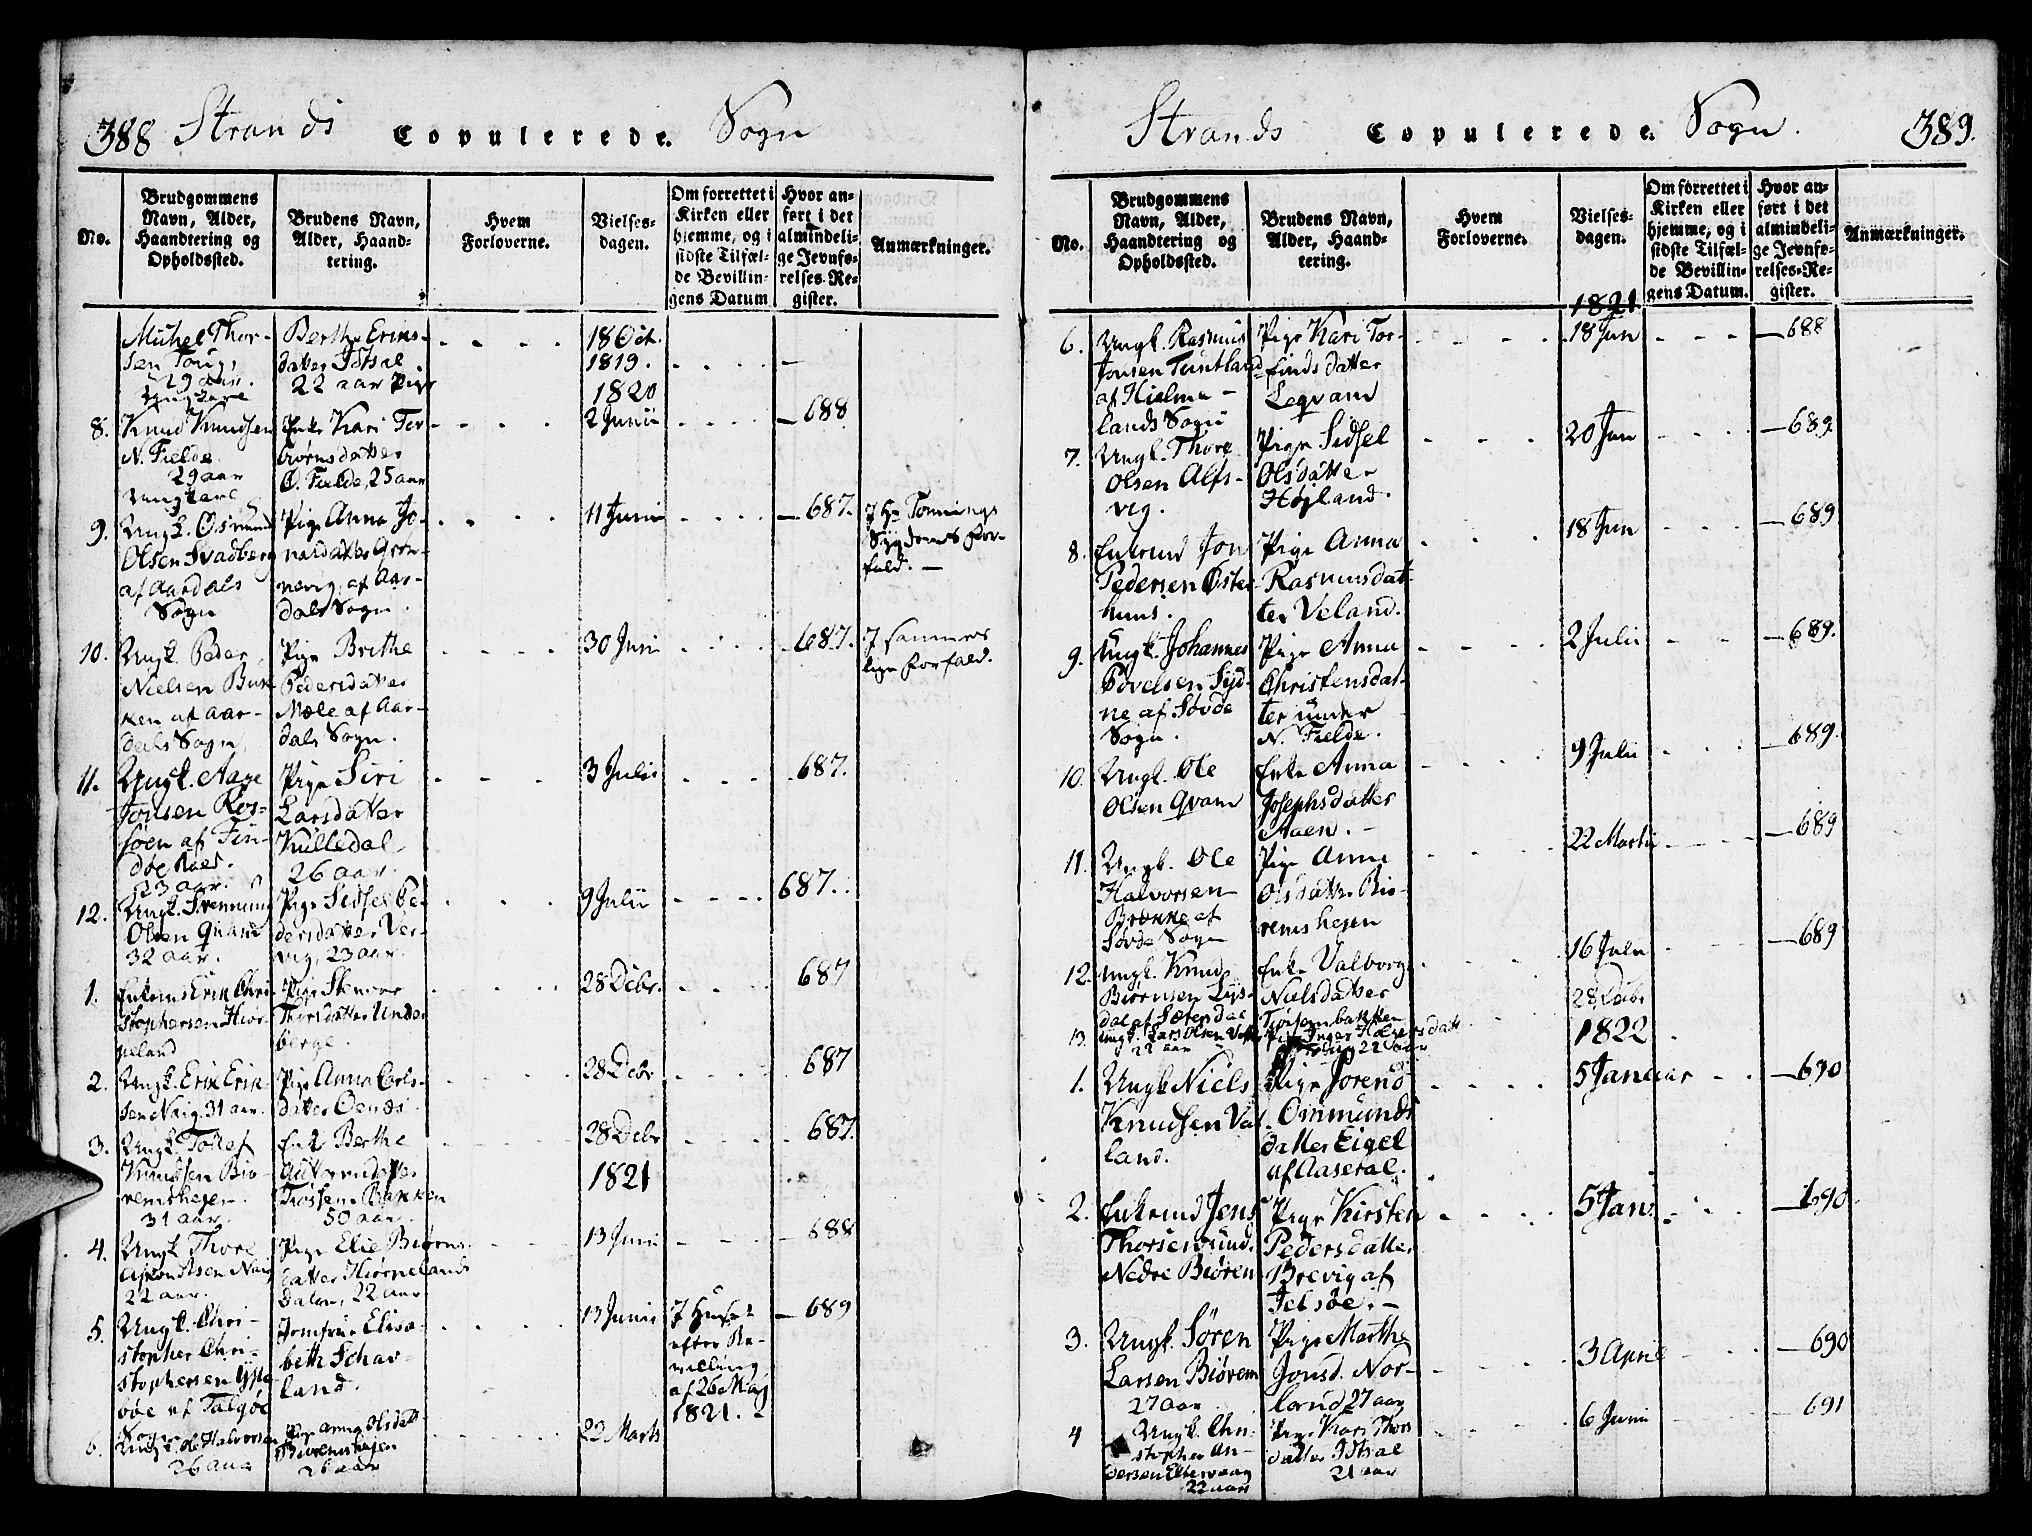 388 Strands Copulerede. Sogn
No.
Brudgommens
Navn, Alder,
Haandtering og
Opholdssted.
Brudens Navn,
Alder, Haand-
tering.
Hvem
Forloverne.
Vielses-
dagen.
Om forrettet i
Kirken eller
hjemme, og i
sidste Tilfæl-
de Bevillin-
gens Datum
Hvor an-
ført i det
almindeli-
ge Jevnfø-
relses-Re-
gister.
Anmærkninger.
Michel Thor-
sen
29 aar.
Ungkarl
Berthe Erics-
datter Idsal
22 aar Pige
18 Oct.
1819.
1820
8.
Knud Knudsen
N. Fielde
29 aar
Ungkarl
Enke Kari Tor
biørnsdatter
Ø. Fielde, 25 aar
2 Junii
688
9.
Ungk. Osmund
Olsen Svadberg
af Aardals
Sogn
Pige Anna Jo-
nasdatter Grøn-
nevig, af Aar-
dals Sogn.
11 Junii
687.
I Hr Tonnings
Sygdoms For-
fald.
10.
Ungk. Peder
Nielsen Buk-
ken af Aar-
dals Sogn
Pige Brithe
Pedersdatter
Mæle af Aar-
dals Sogn.
30 Juni
687.
I sammes
lige Forfald.
11.
Ungk. Aage
Jonsen Ros-
søen af Fin-
døe Præst.
23 aar.
Pige Siri
Larsdatter
Kulledal
26 aar.
3 Julii
687.
12.
Ungk. Svennung
Olsen Qvam
32 aar.
Pige Sidsel Pe-
dersdatter Ver-
vig, 23 aar.
9 Julii
687.
1.
Enkem. Erik Chri-
stophersen Hiør-
peland
Pige Stenvor
Thorsdatter Under
berge.
28 Debr.
687
2.
Ungk. Erik Erik-
sen Naig 31 aar.
Pige Anna Carls-
datter Oends
28 Debr
687
3.
Ungk. Tollef
Knudsen Biø-
remshejen.
31 aar.
Enke Berthe
Guttormdatter
Tiossem Bakken
50 aar.
28 Debr
1821
687.
4.
Ungk. Thore
Amondsen Naig
22 aar.
Pige Elie Biørns
datter Hiørnelands
Dalen, 22 aar
13 Juni
688
5.
Ungk. Chri-
stopher Chri-
stophersen
øe af Talgøe
Sogn
Jomfrue Elisa-
beth Schar-
land.
13 Junii
I Huset
efter Be-
villing
af 26 Maj
1821.
689
6.
Ungk. Ole Halvorsen
26 aar
Pige Anna Olsdatt.
Biøremshejen
26 aar
23 Marts
Strands Copulerede. Sogn. 389.
No.
Brudgommens
Navn, Alder,
Haandtering og
Opholdssted.
Brudens Navn,
Alder, Haand-
tering.
Hvem
Forloverne.
Vielses-
dagen.
Om forrettet i
Kirken eller
hjemme, og i
sidste Tilfæl-
de Bevillin-
gens Datum.
Hvor an-
ført i det
almindeli-
ge Jevnfø-
relses-Re-
gister.
Anmærkninger.
1821
6.
Ungk. Rasmus
Jonsen Tuntland
af Hielme-
lands Sogn
Pige Kari Tor-
finds datter
Leqvam
18 Jun
688
7.
Ungk. Thore
Olsen Alfs-
vig.
Pige Sidsel
Olsdatter
Højland.
20 Jun
689.
8.
Enkemd Jon
Pedersen Øster
huus.
Pige Anna
Rasmusdat-
ter Veland.
18 Jun
689
9.
Ungk. Johannes
Povelsen Syd-
ne af Søvde
Sogn.
Pige Anna
Christensdat-
ter under
N. Fielde.
2 Julii
689.
10.
Ungk. Ole
Olsen Qvam
Enke Anna
Josephsdatter
Aaen.
9 Julii
689.
11.
Ungk. Ole
Halvorsen
Brønne af
Søvde Sogn
Pige Anna
Olsdatter Biø-
remshejen
22 Martii
689
12.
Ungk. Knud
Biørnsen Lys-
dal af Sætersdal
Enke Valborg
Nielsdatter
Tiøssembakken
16 Julii
689
13.
Ungk. Lars Olsen
22 aar
Pige Inger Holgersdatt
22 aar
28 Debr
1822
1.
Ungk Niels
Knudsen Va-
land.
Pige Sorend
Ommunds
datter Eigel
af Aaseral.
5 Januar
690
2.
Enkemd Jens
Thorsen
Nedre Biøren
Pige Kirsten
Pedersdatter
Brevig af
Jelsøe.
5 Jan
690.
3.
Ungk. Sören
Larsen Biörem
27 aar
Pige Marthe
Jonsd. Nor-
land 27 aar
3 April
690
4
Ungk. Chri-
stopher An-
dersen Eltervaag
22 aar
Pige Kari Thors
datter Idsal
21 aar
6 Juni
691